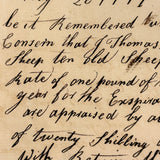 be it Remembered
Concern that I Thomas
Sheep ten old Sheep
Rate of one pound of
year for the Exspira
are appraised by a
of twenty Shilling
With